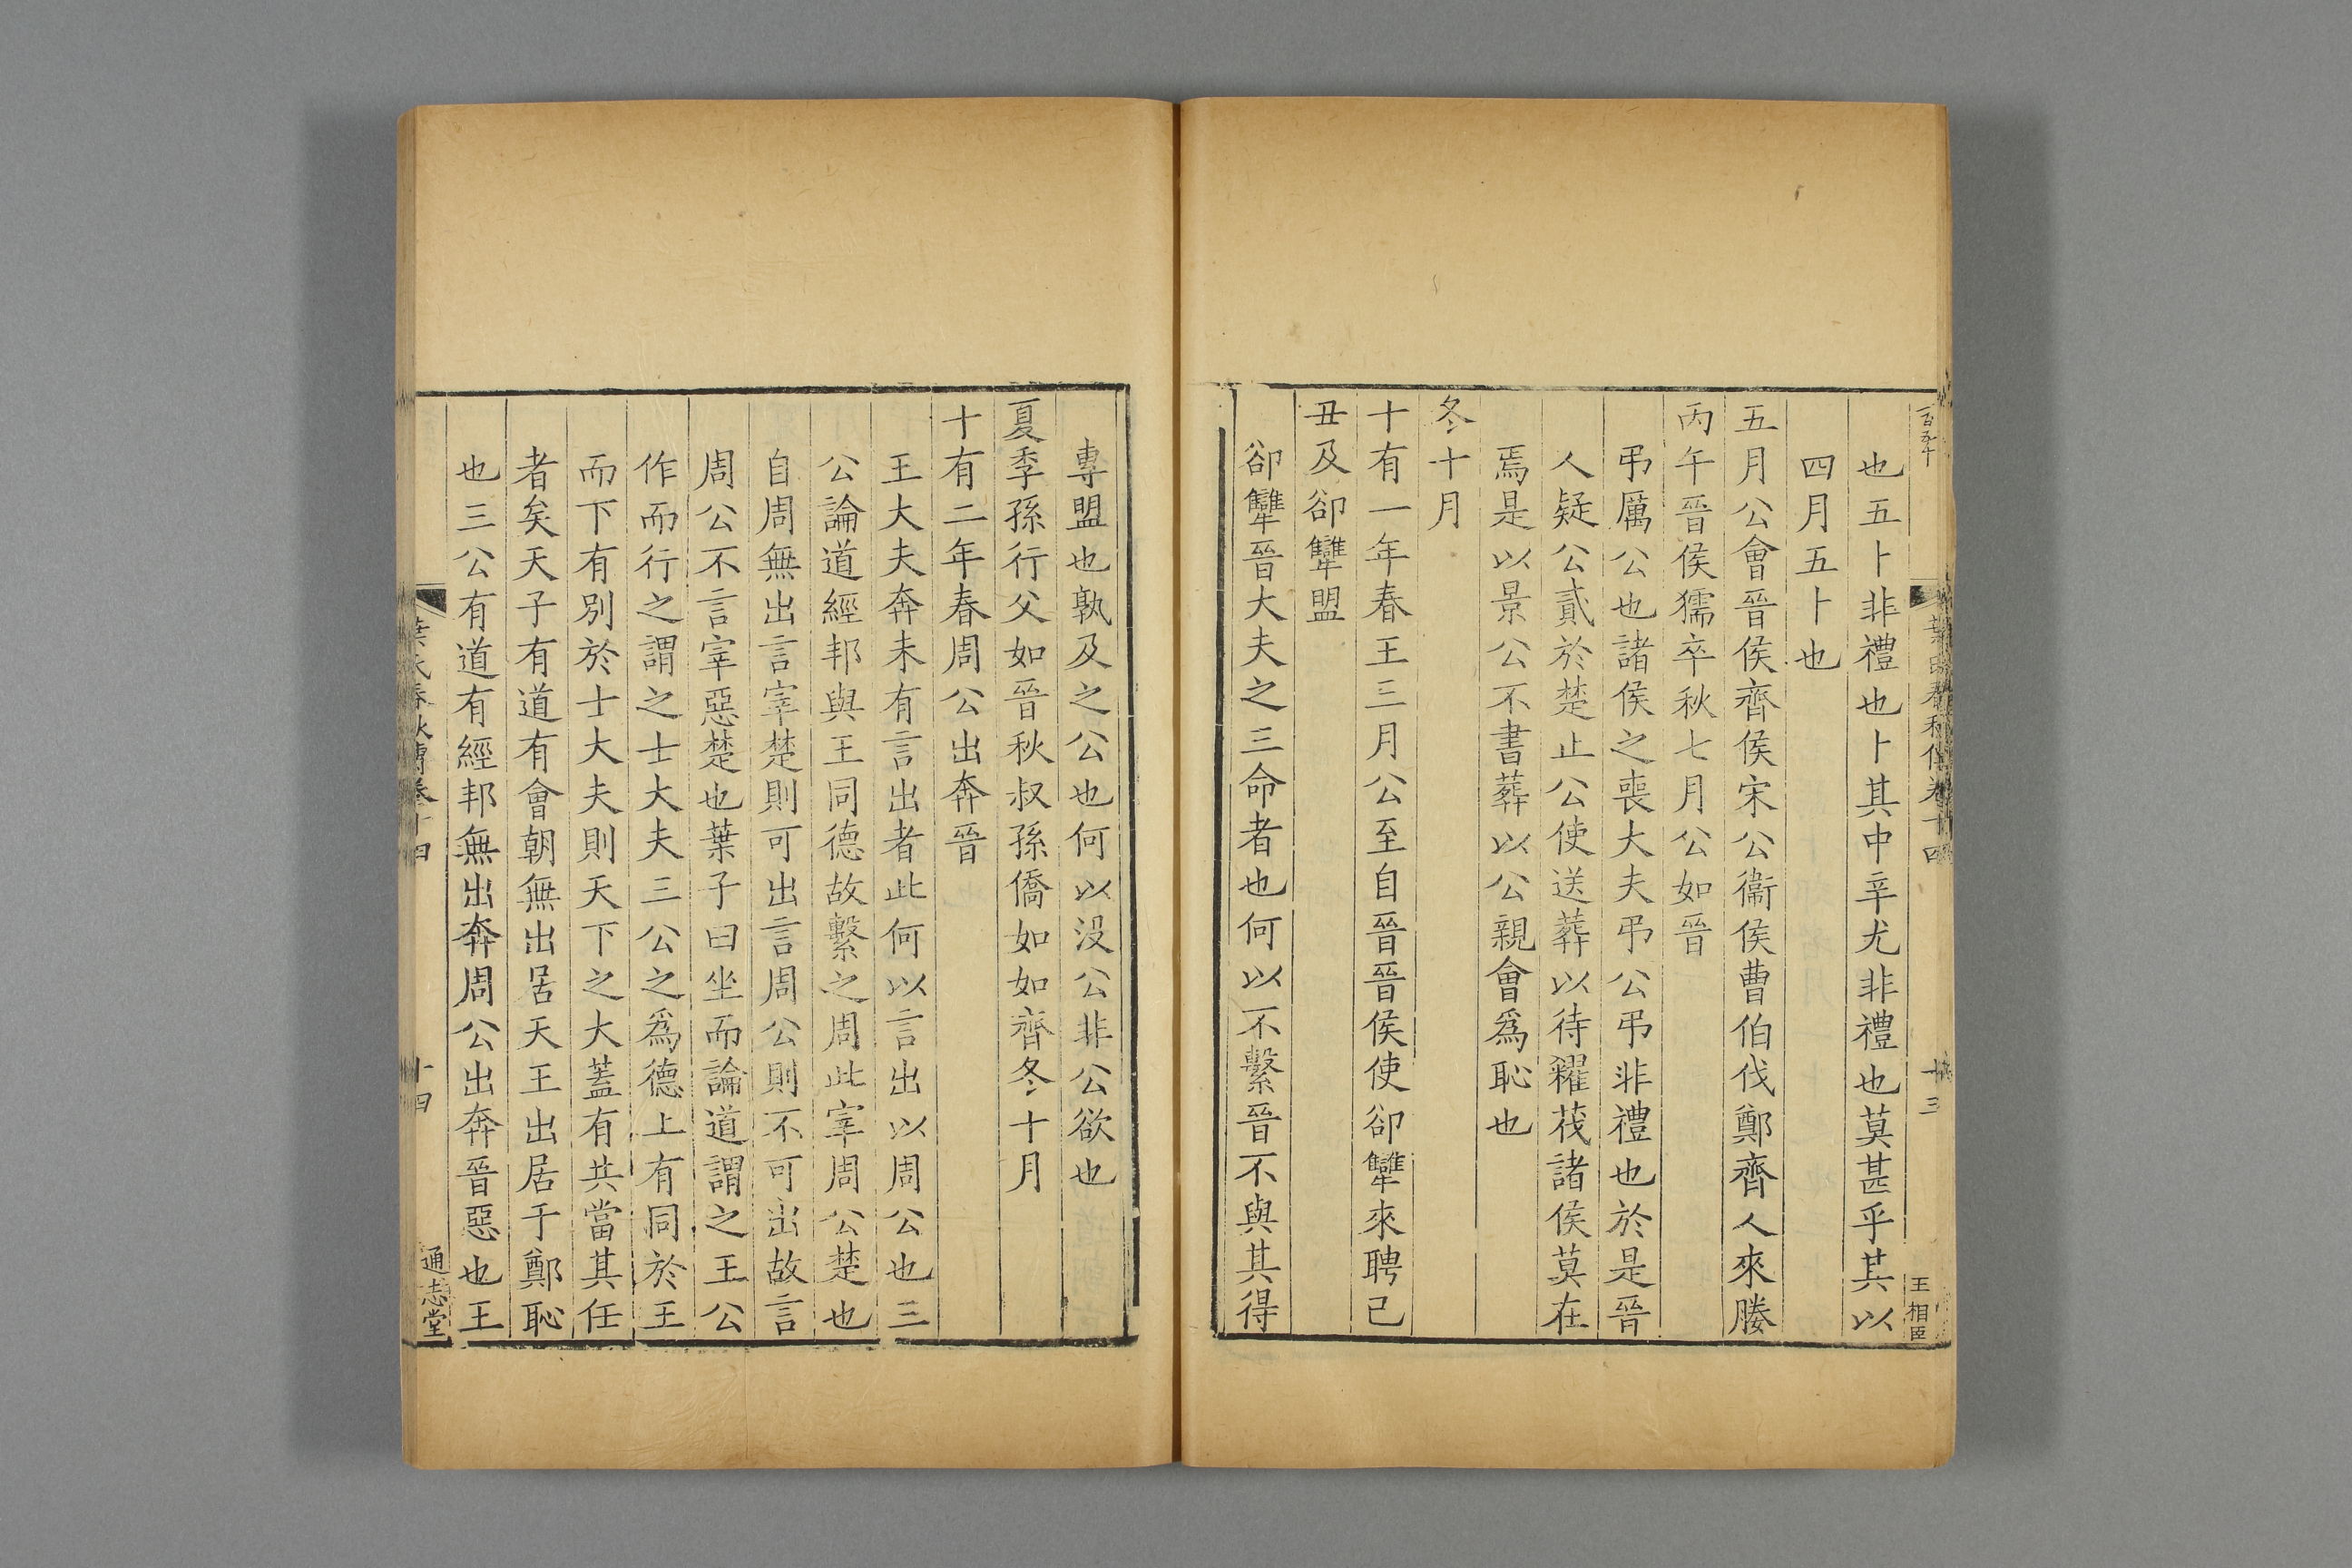 也五卜非禮也卜其中辛尤非禮也莫甚乎其以
四月五卜也
五月公會晉侯齊侯宋公衞侯曹伯伐鄭齊人來媵
丙午晉侯獳卒秋七月公如晉
弔厲公也諸侯之喪大夫弔公弔非禮也於是晉
人疑公貳於楚止公使送葬以待糴茷諸侯莫在
焉是以景公不書葬以公親會爲恥也
冬十月
十有一年春王三月公至自晉晉侯使郤犫來聘己
丑及郤犫盟
郤犫晉大夫之三命者也何以不繫晉不與其得
專盟也孰及之公也何以没公非公欲也
夏季孫行父如晉秋叔孫僑如如齊冬十月
十有二年春周公出奔晉
王大夫奔未有言出者此何以言出以周公也三
公論道經邦與王同德故繫之周此宰周公楚也
自周無出言宰楚則可出言周公則不可出故言
周公不言宰惡楚也葉子曰坐而論道謂之王公
作而行之謂之士大夫三公之爲德上有同於王
而下有別於士大夫則天下之大蓋有共當其任
者矣天子有道有會朝無出居天王出居于鄭恥
也三公有道有經邦無出奔周公出奔晉惡也王
葉氏春秋傳卷十四
十三
王相臣
葉氏春秋傳卷十四
十四
通志堂